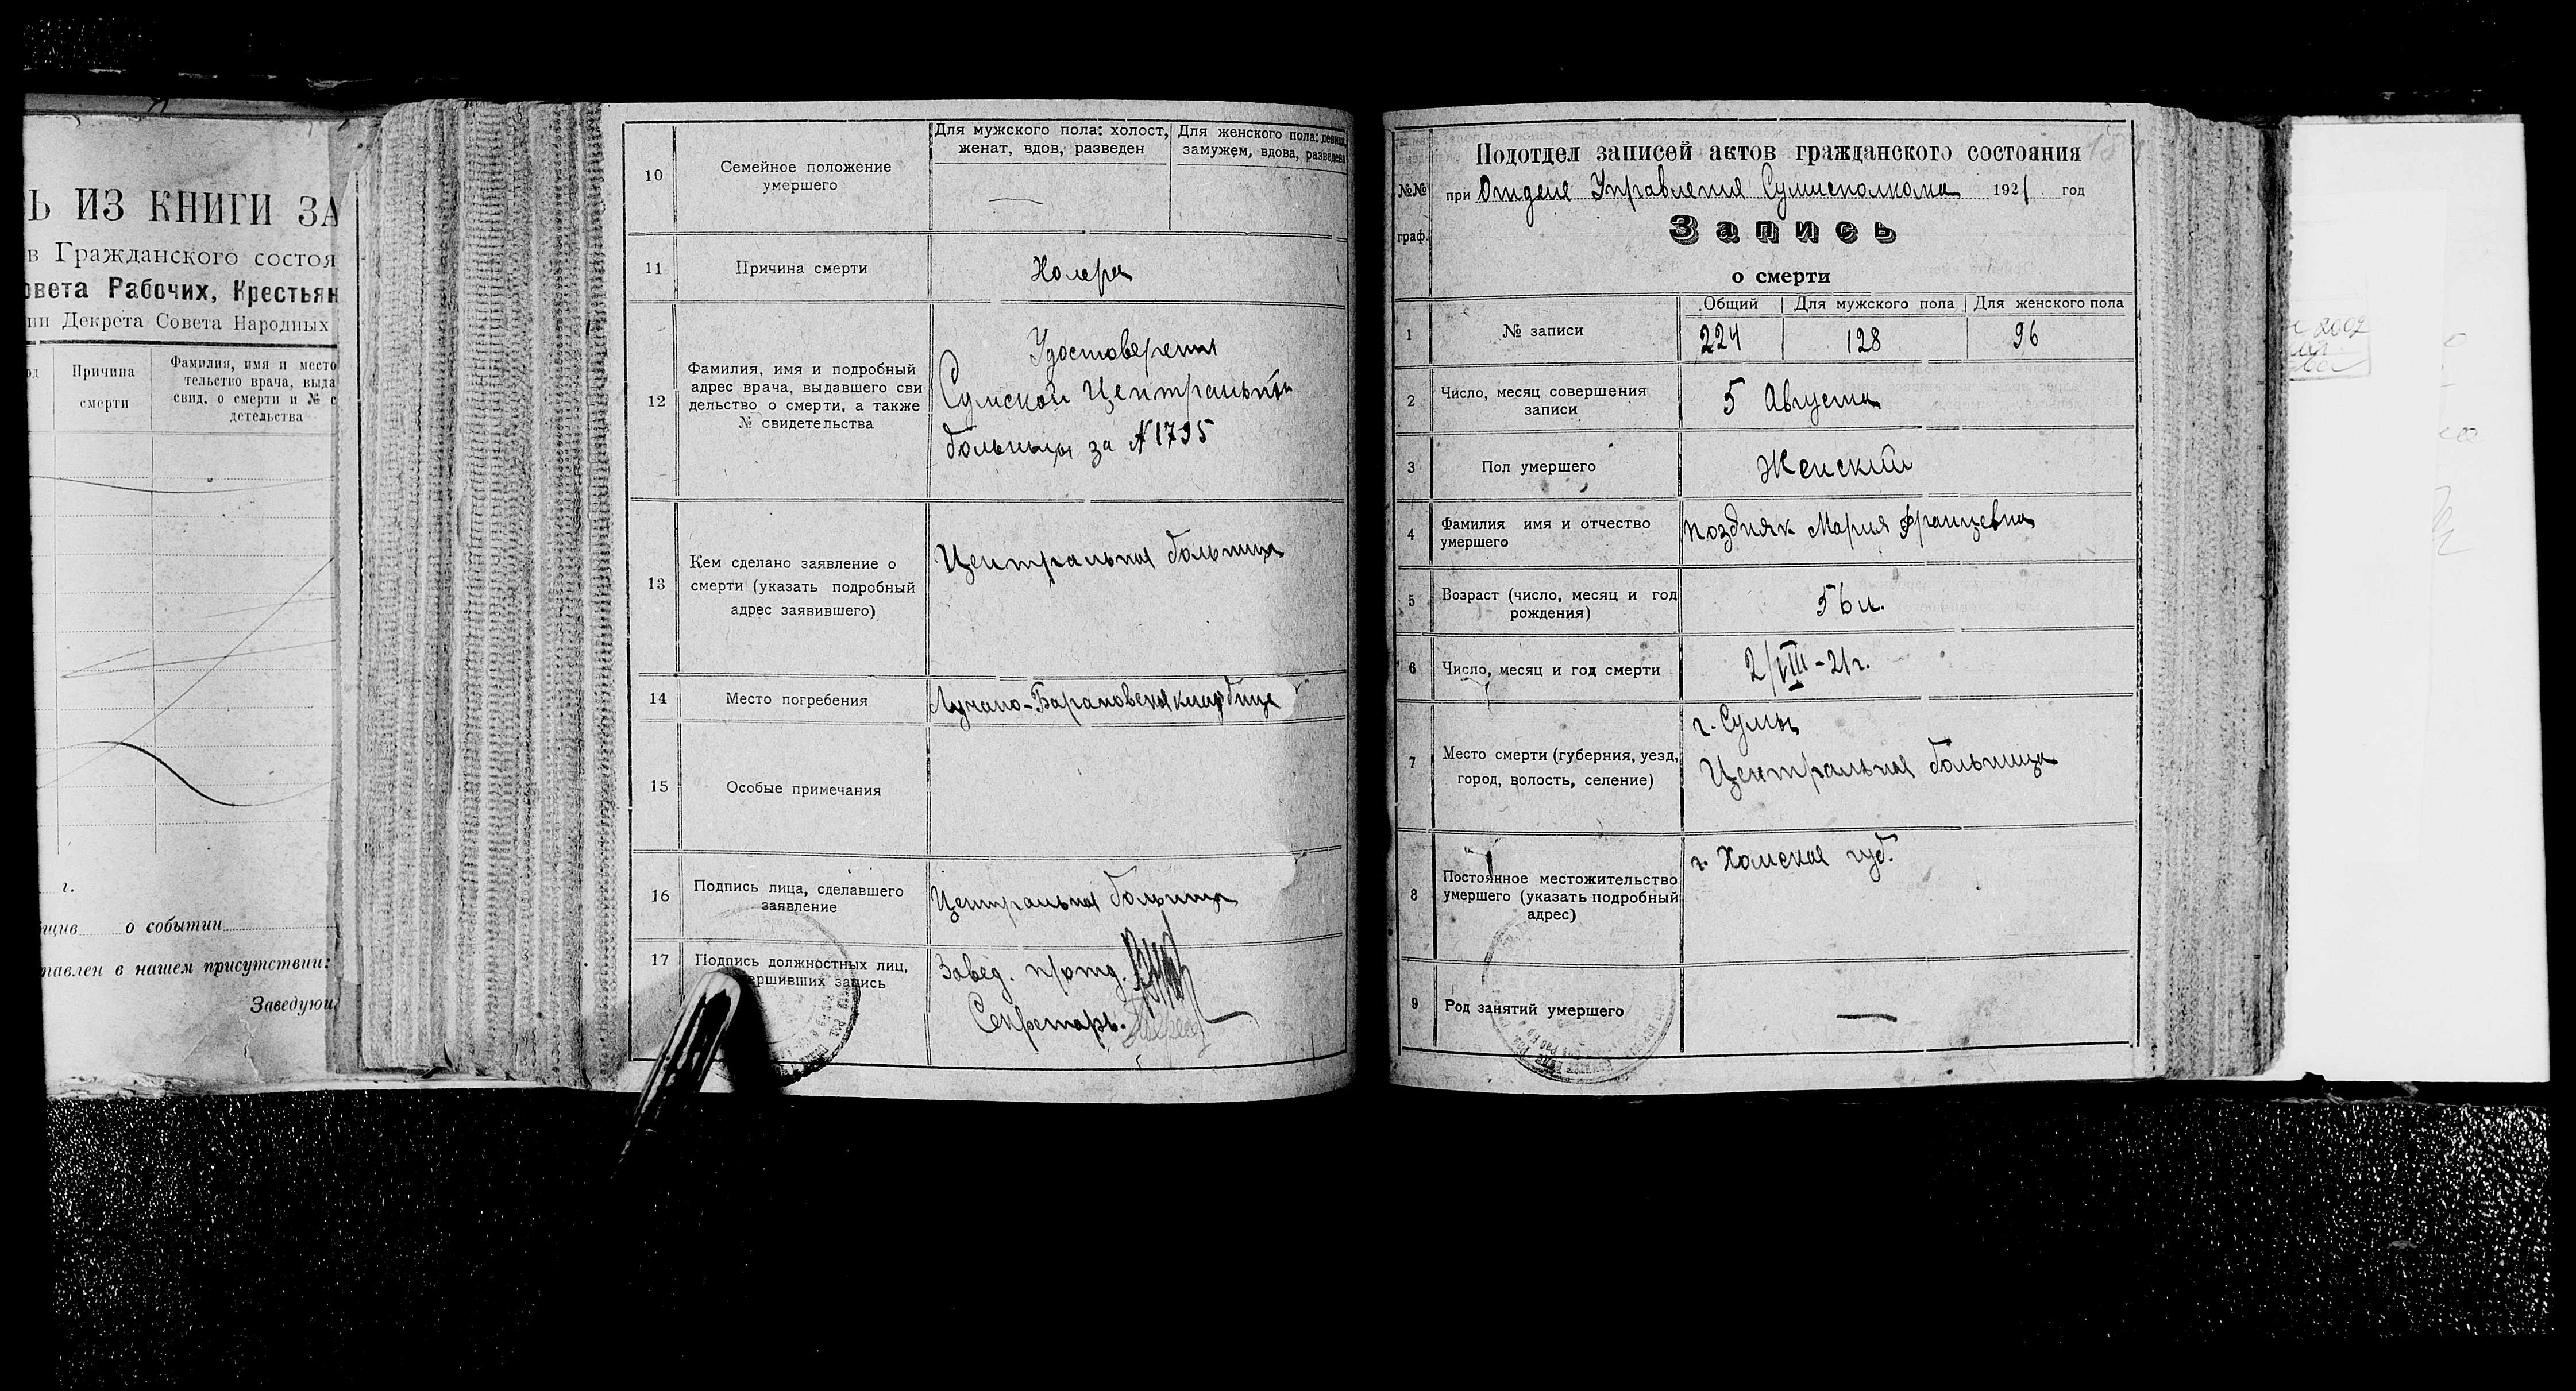 Ь ИЗ КНИГИ ЗА
в Гражданского состоя
овета Рабочих, Крестьян
ии Декрета Совета Народных
Причина
смерти
Фамилия, имя и место
тельство врача, выда
свид. о смерти и № с
детельства
г.
о событии
тавлен в нашем присутствии:
Заведующ
10
Семейное положение
умершего
Для мужского пола: холост,
женат, вдов, разведен
Для женского пола: девица,
замужем, вдова, разведена
—
11
Причина смерти
Холера
12
Фамилия, имя и подробный
адрес врача, выдавшего сви
дельство о смерти, а также
№ свидетельства
Удостоверения
Сумской Центральной
больницы за №1795
13
Кем сделано заявление о
смерти (указать подробный
адрес заявившего)
Центральная больница
14
Место погребения
Лучано-Барановское кладбище
15
Особые примечания
16
Подпись лица, сделавшего
заявление
Центральная больница
17
Подпись должностных лиц,
ершивших запись
Завед. п/отд.
Секретарь.
№№
граф.
Подотдел записей актов гражданского состояния
при Отделе Управления Сумисполкома 1921 год
Запись
о смерти
1
№ записи
Общий
Для мужского пола
Для женского пола
224
128
96
2
Число, месяц совершения
записи
5 Августа
3
Пол умершего
Женский
4
Фамилия имя и отчество
умершего
Поздняк Мария Францевна
5
Возраст (число, месяц и год
рождения)
56 л.
6
Число, месяц и год смерти
2/VIII-21г.
7
Место смерти (губерния, уезд,
город, волость, селение)
г. Сумы
Центральная больница
8
Постоянное местожительство
умершего (указать подробный
адрес)
г. Холмская губ.
9
Род занятий умершего
—